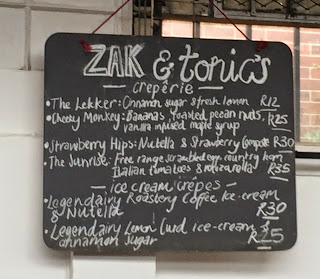 ZAK & tonic's
crepêrie
• The Lekker: Cinnamon sugar & fresh lemon R12
• Cheeky Monkey: Bananas, toasted pecan nuts, R25
vanilla infused maple syrup
• Strawberry Hips: Nutella & Strawberry Compote R30
• The Sunrise: Free range scrambled egg, country ham
Italian tomatoes & mozzarella R35
— ice cream crêpes —
• Legendary Roastery Coffee ice-cream
& Nutella R30
• Legendary Lemon Curd ice-cream &
cinnamon sugar R25